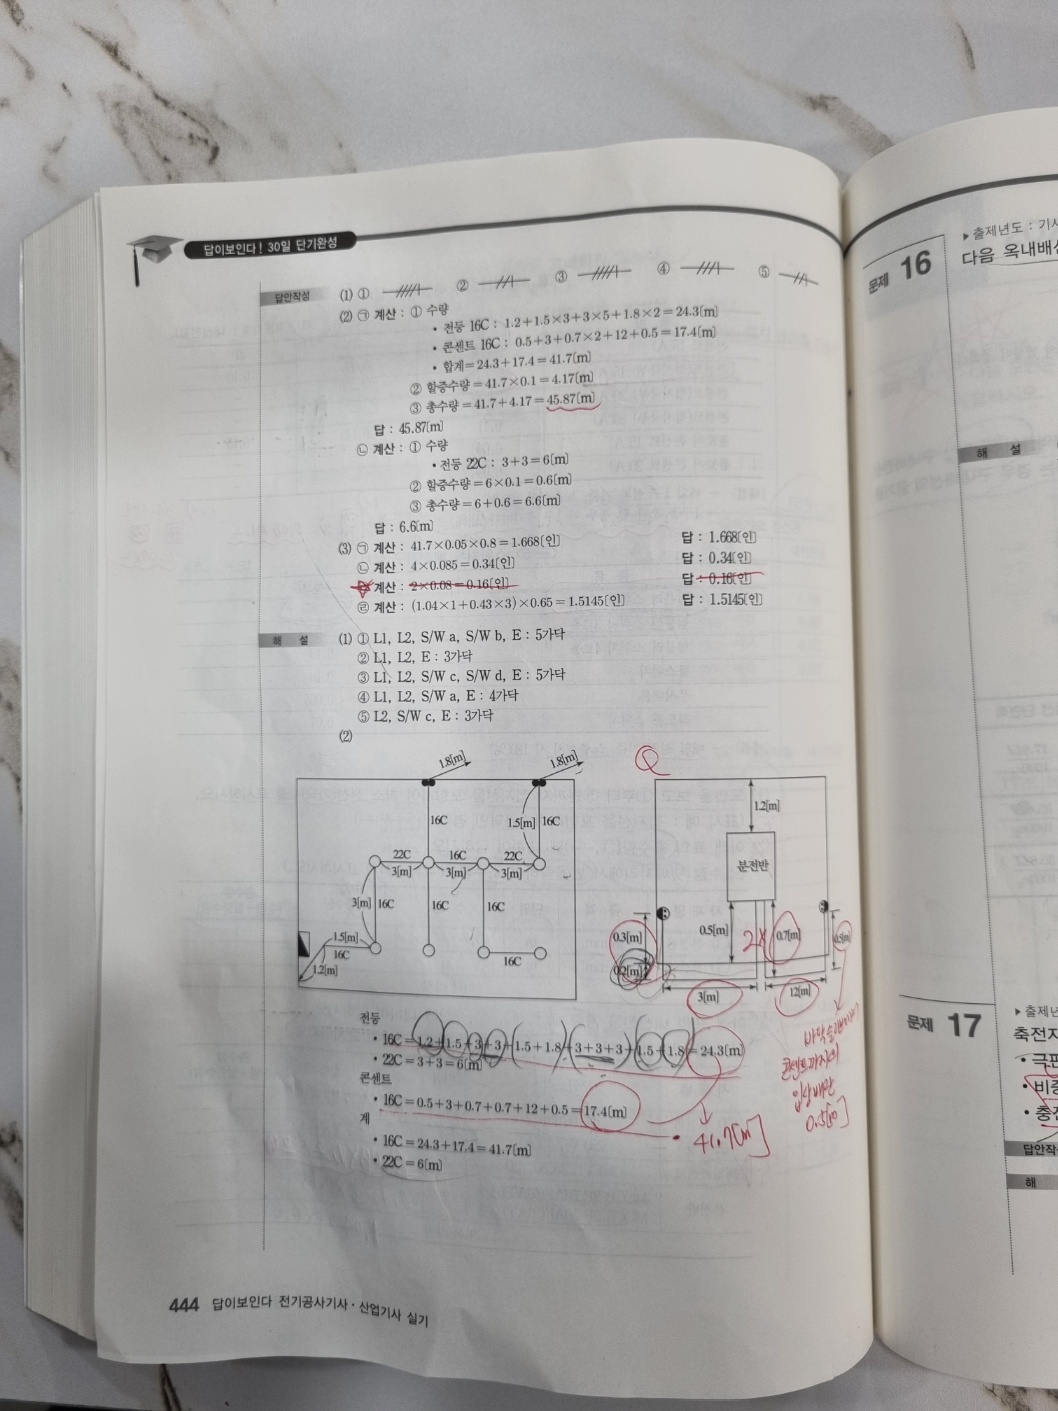 답이보인다! 30일 단기완성
답안작성 (1) ① ② ③ ④ ⑤
(2) ㉠ 계산 : ① 수량
• 전등 16C : 1.2+1.5×3+3×5+1.8×2=24.3[m]
• 콘센트 16C : 0.5+3+0.7×2+12+0.5=17.4[m]
• 합계=24.3+17.4=41.7[m]
② 할증수량=41.7×0.1=4.17[m]
③ 총수량=41.7+4.17=45.87[m]
답 : 45.87[m]
㉡ 계산 : ① 수량
• 전등 22C : 3+3=6[m]
② 할증수량=6×0.1=0.6[m]
③ 총수량=6+0.6=6.6[m]
답 : 6.6[m]
(3) ㉠ 계산 : 41.7×0.05×0.8=1.668[인] 답 : 1.668[인]
㉡ 계산 : 4×0.085=0.34[인] 답 : 0.34[인]
계산 : 2×0.08=0.16[인] 답 : 0.16[인]
㉣ 계산 : (1.04×1+0.43×3)×0.65=1.5145[인] 답 : 1.5145[인]
해 설 (1) ① L1, L2, S/W a, S/W b, E : 5가닥
② L1, L2, E : 3가닥
③ L1, L2, S/W c, S/W d, E : 5가닥
④ L1, L2, S/W a, E : 4가닥
⑤ L2, S/W c, E : 3가닥
(2)
1.8[m] 1.8[m]
16C 1.5[m] 16C
22C 16C 22C
3[m] 3[m] 3[m]
3[m] 16C 16C 16C
1.5[m]
16C 16C
1.2[m]
Q
1.2[m]
분전반
0.3[m] 0.5[m] 2× 0.7[m] 0.5[m]
0.2[m]
3[m] 12[m]
전등
• 16C=1.2+1.5+3+3+(1.5+1.8)+(3+3+3)+(1.5+1.8)=24.3[m]
• 22C=3+3=6[m]
콘센트
• 16C=0.5+3+0.7+0.7+12+0.5=17.4[m]
계
• 16C=24.3+17.4=41.7[m]
• 22C=6[m]
• 41.7[m]
콘센트까지의
입상배관
0.5[m]
444 답이보인다 전기공사기사·산업기사 실기
문제 16
▶출제년도 : 기사
다음 옥내배선
해 설
문제 17
▶출제년
축전지
• 극판
• 비중
• 충전
답안작
해